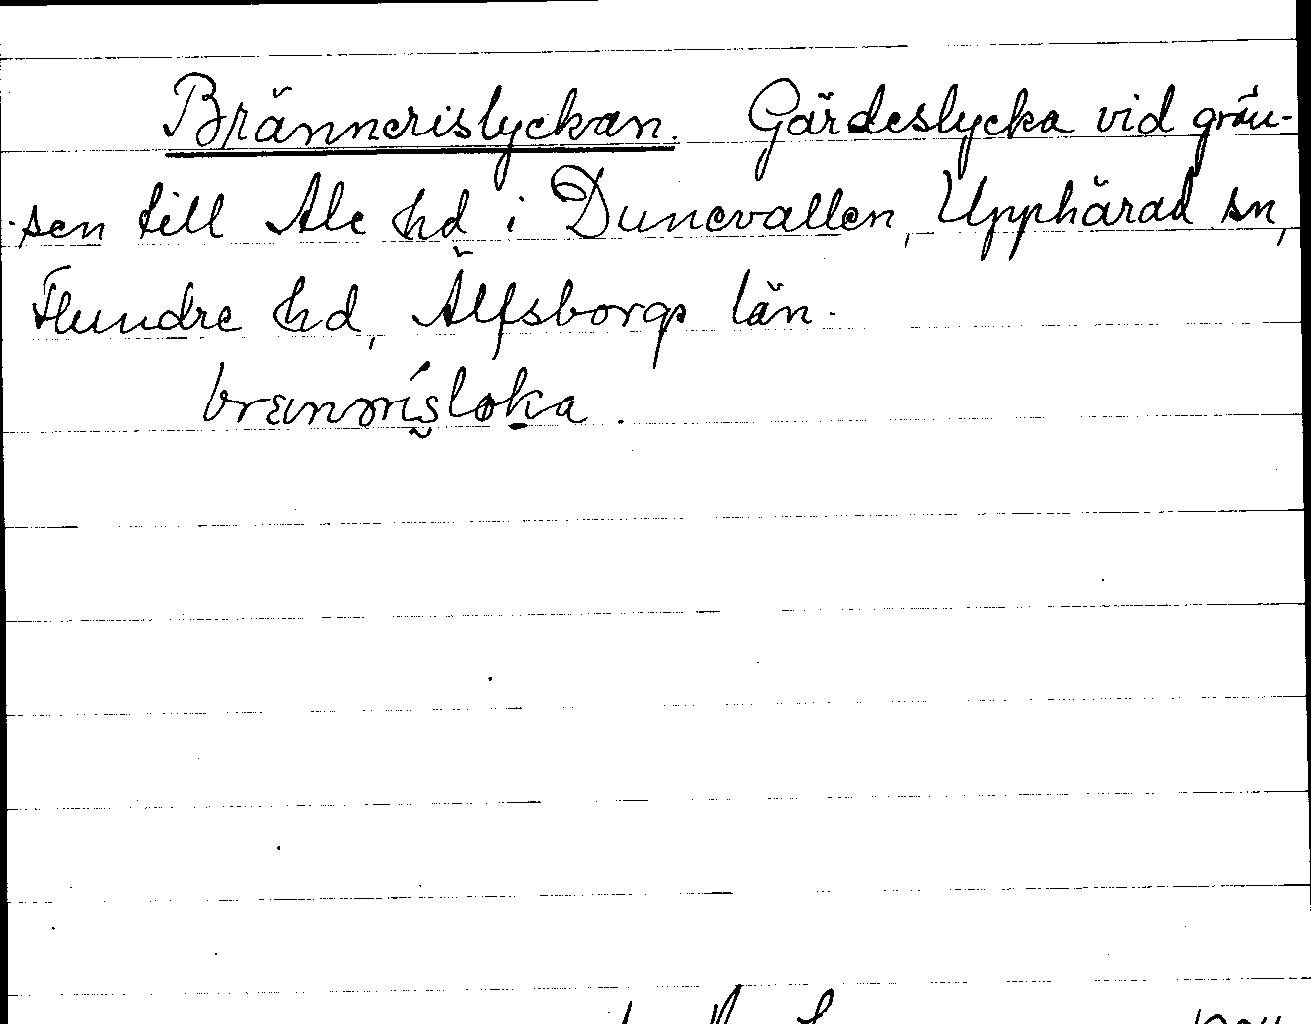 Brännerislyckan. Gärdeslycka vid grän-
sen till Ale hd i Dunevallen, Upphärad sn,
Flundre hd, Älfsborgs län.